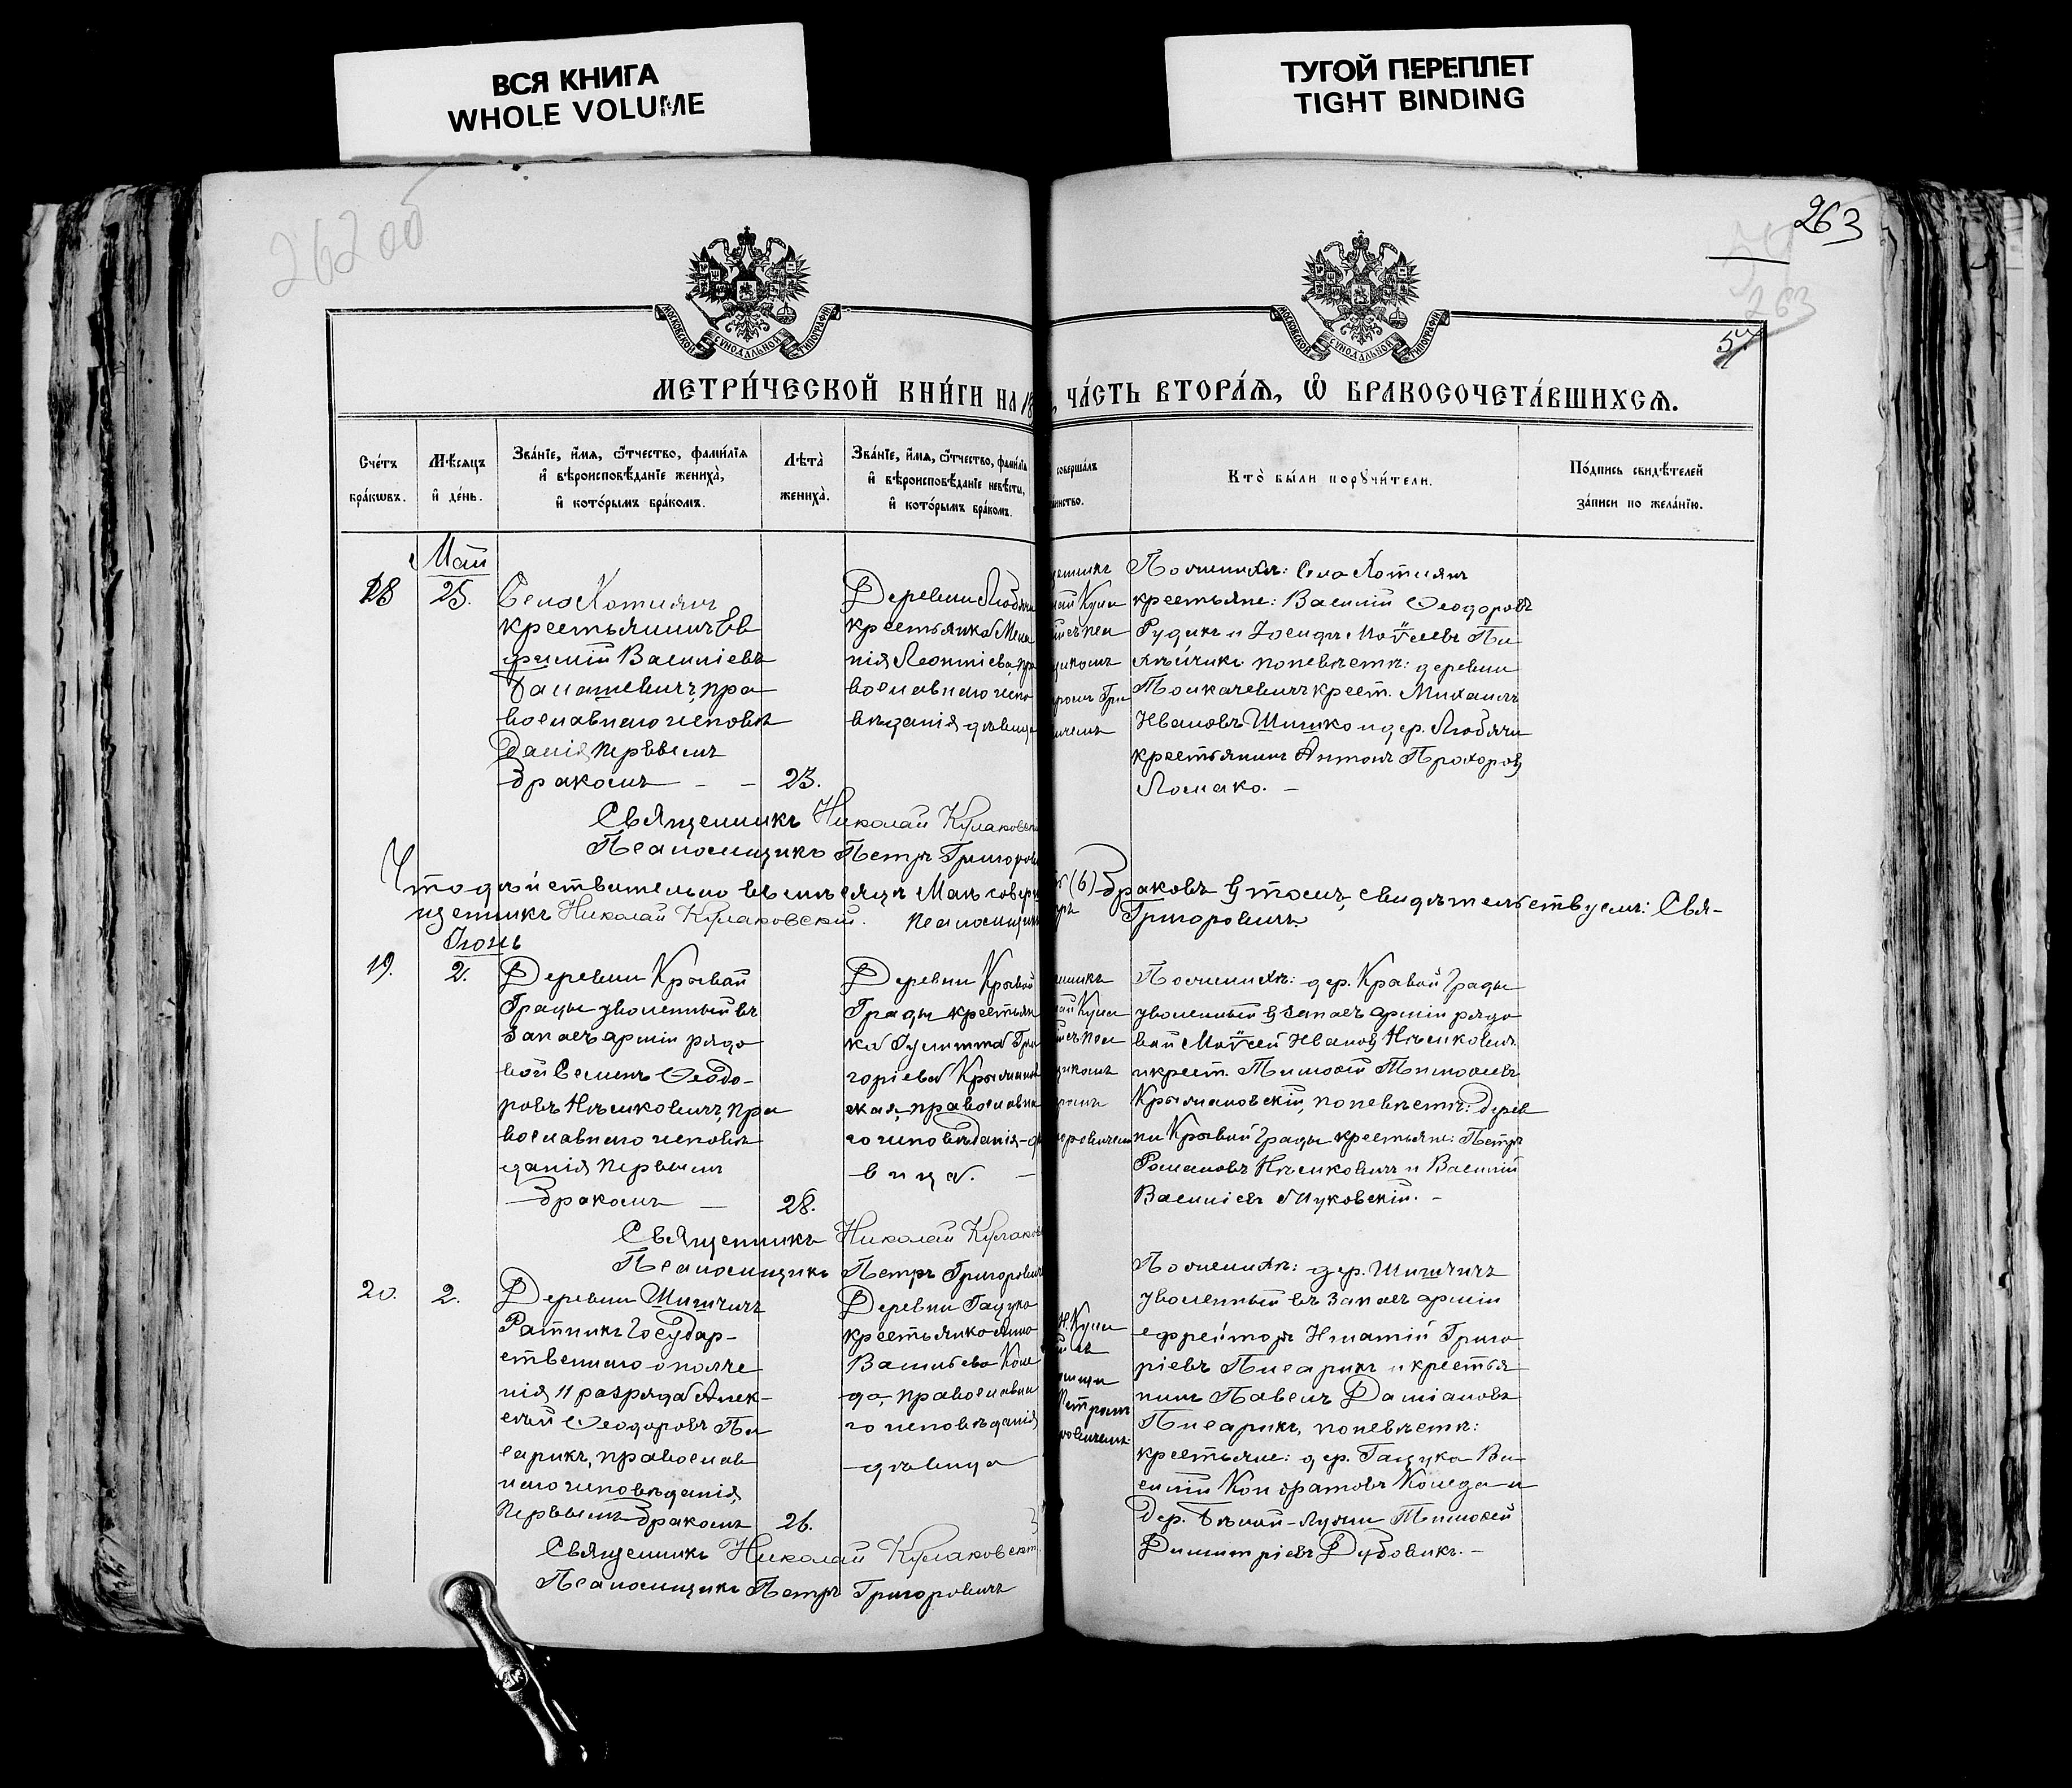 ВСЯ КНИГА
WHOLE VOLUME
ТУГОЙ ПЕРЕПЛЕТ
TIGHT BINDING
262 об
263
263
МОСКОВСКОЙ СУНОДАЛЬНОЙ ТИПОГРАФІИ
МОСКОВСКОЙ СУНОДАЛЬНОЙ ТИПОГРАФІИ
МЕТРИ́ЧЕСКОЙ КНИ́ГИ НА 18
ЧА́СТЬ ВТОРА́Ѧ, Ѽ БРАКОСОЧЕТА́ВШИХСѦ.
Сче́тъ бра́кѡвъ.
Мѣ́сѧцъ и҆ де́нь.
Зва́нїе, и҆́мѧ, ѻ҆́тчество, фами́лїѧ и҆ вѣроисповѣ́данїе жениха̀, и҆ кото́рымъ бра́комъ.
Лѣта̀ жениха̀.
Зва́нїе, и҆́мѧ, ѻ҆́тчество, фами́лїѧ и҆ вѣроисповѣ́данїе невѣ́сты, и҆ кото́рымъ бра́комъ.
соверша́лъ
Кто̀ бы́ли порꙋчи́тели.
По́дпись свидѣ́телей за́писи по жела́нїю.
Май
18
25.
Села Хотиличъ
крестьянинъ Ев
фимій Василіевъ
православнаго исповѣ
данія, первымъ
бракомъ — — 23.
Деревни Любачи
крестьянка Мела
нія Леонтіева, пра
вославнаго испо
вѣданія дѣвица
Кула
псал
щикомъ
Гри
По женихѣ:
крестьяне: Василій Ѳеодоровъ
Рудикъ и Іосифъ Моѵсеевъ
по невѣстѣ: деревни
крест. Михаилъ
Ивановъ Шишко и дер. Любачи
крестьянинъ Антонъ Прохоровъ
Ломако. —
Священникъ Николай Кулаковскій
Псаломщикъ Петръ Григоров
Что дѣйствительно въ мѣсяцѣ Маѣ совер
(6) браковъ въ томъ, свидѣтельствуемъ: Свя-
щенникъ Николай Кулаковскій. Псаломщикъ
Григоровичъ.
Іюнь
19.
2.
Деревни Кривой
Гряды уволенный въ
запасъ арміи рядо
вой Семенъ Ѳеодо-
ровъ Нѣмковичъ, пра
вославнаго исповѣ
данія первымъ
бракомъ — 28.
Деревни Кривой
Гряды крестьян
ка Гри
горіева
ская, православна
го исповѣданія — дѣ
вица. —
Кула
псал
щикомъ
По женихѣ: дер. Кривой Гряды
уволенный въ запасъ арміи рядо
вой Моѵсей Ивановъ Нѣмковичъ
и крест. Тимоѳей Тимоѳеевъ
по невѣстѣ: дерев
ни Кривой Гряды крестьяне: Петръ
Романовъ Нѣмковичъ и Василій
Василіевъ
Священникъ Николай Кулаков
Псаломщикъ Петръ Григорович
20.
2.
Деревни Шишчичъ
Ратникъ Государ-
ственнаго ополче
нія II разряда Алек-
сѣй Ѳеодоровъ Пи
сарикъ, православ
наго исповѣданія,
первымъ бракомъ 26.
Деревни Гацука
крестьянка Анна
Васильева Коле
да, православна
го исповѣданія
дѣвица
Кула
Петромъ
ровичемъ.
По женихѣ: дер. Шишчичъ
уволенный въ запасъ арміи
ефрейторъ Игнатій Григо
ріевъ Писарикъ и крестья
нинъ Павелъ Даміановъ
Писарикъ, по невѣстѣ:
крестьяне: дер. Гацука Ва
силій Кондратовъ Коледа и
дер. Бѣлой-Лужи Тимоѳей
Димитріевъ Дубовикъ. —
Священникъ Николай Кулаковскій
Псаломщикъ Петръ Григоровичъ